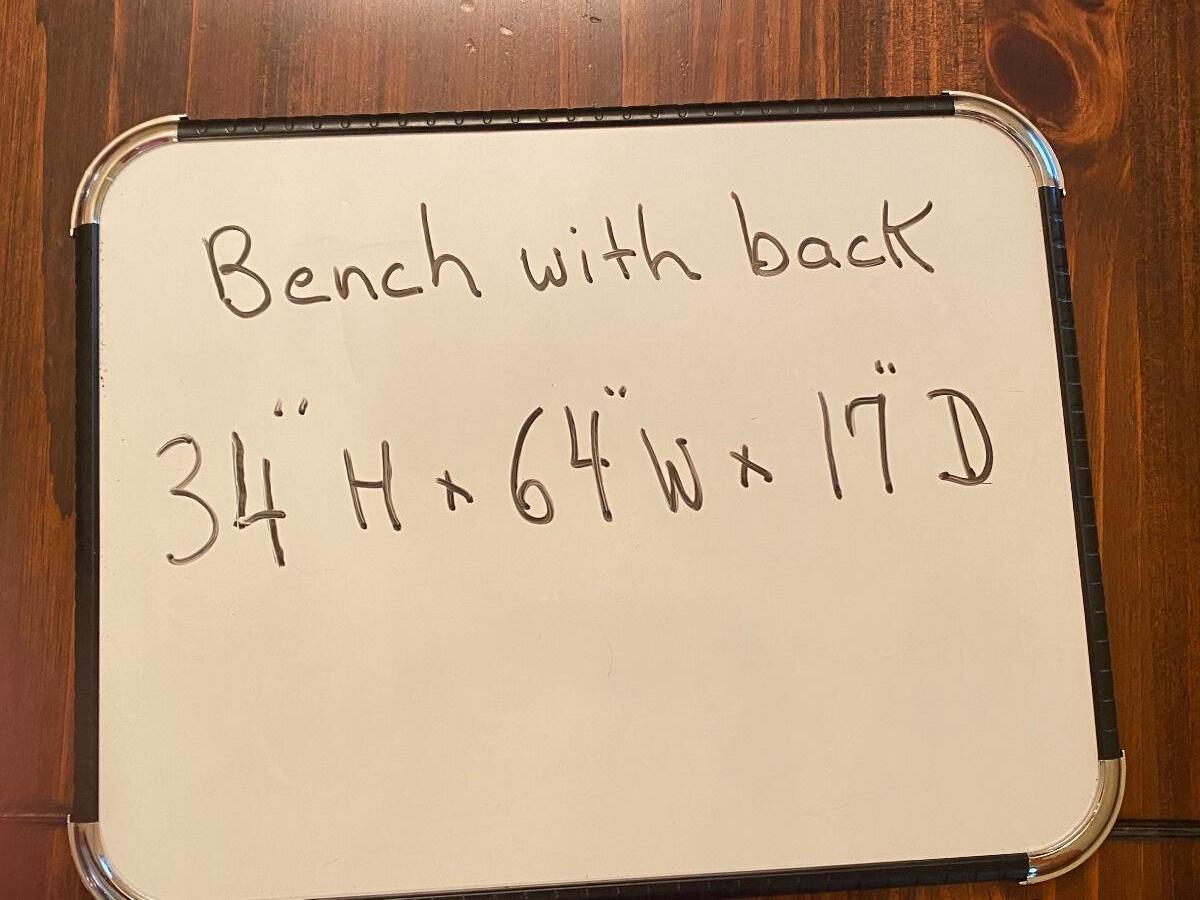 Bench with back
34" H x 64" W x 17" D